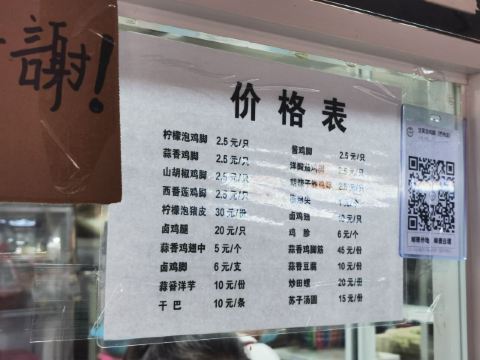 謝!
价格表
柠檬泡鸡脚 2.5元/只
蒜香鸡脚 2.5元/只
山胡椒鸡脚 2.5元/只
西番莲鸡脚 2.5元/只
柠檬泡猪皮 30元/份
卤鸡腿 20元/只
蒜香鸡翅中 5元/个
卤鸡脚 6元/支
蒜香洋芋 10元/份
干巴 10元/条
酱鸡脚 2.5元/只
2.5元/只
2.5元/只
卤鸡翅
鸡胗 6元/个
蒜香鸡脚筋 45元/份
蒜香豆腐 10元/份
炒田螺 20元/份
苏子汤圆 15元/份